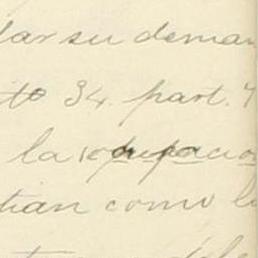 lar su deman
to 34. part. 4
la ocupacion
tian como l